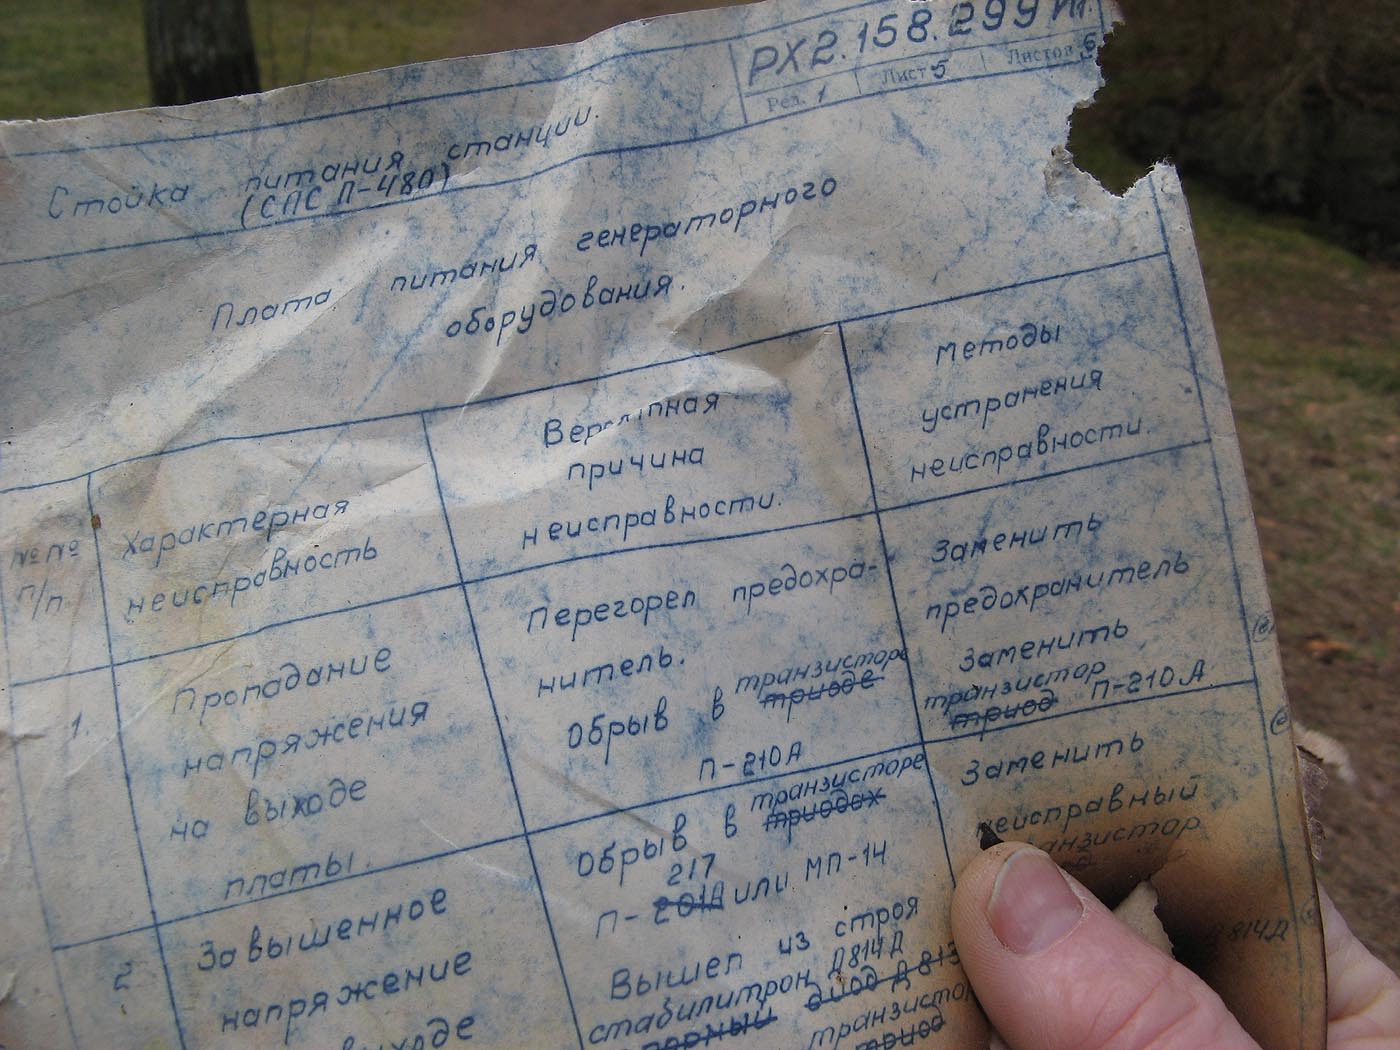 РХ2.158.299
Ред. 1 Лист 5 Листов 6
Стойка питания станции.
(СПС П-480)
Плата питания генераторного
оборудования.
№№
п/п.
Характерная
неисправность
Вероятная
причина
неисправности.
Методы
устранения
неисправности.
1.
Пропадание
напряжения
на выходе
платы.
Перегорел предохра-
нитель.
Обрыв в транзисторе
триоде
П-210А
Заменить
предохранитель
Заменить
транзистор
триод П-210А
2
Завышенное
напряжение
выходе
Обрыв в транзисторе
триодах
217
П-201А или МП-14
Вышел из строя
стабилитрон Д814Д
диод Д813
транзистор
триод
Заменить
неисправный
814Д